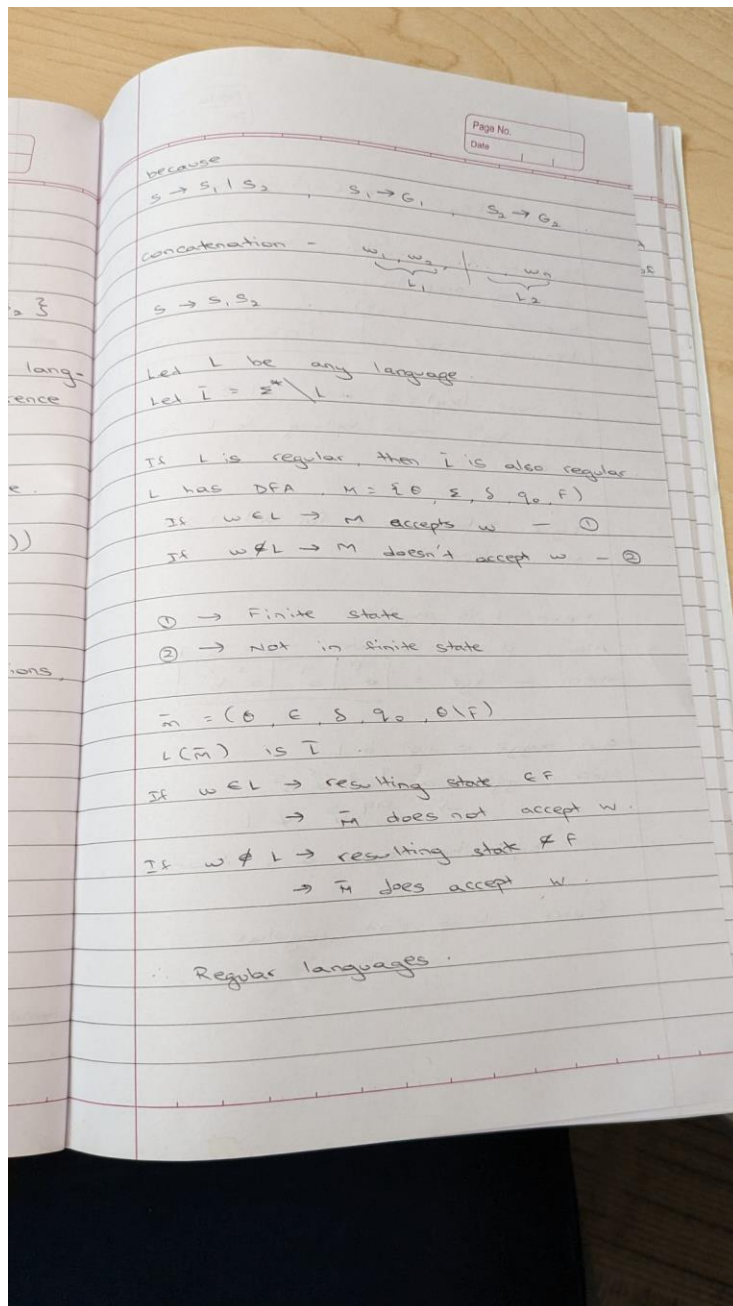 Page No.
Date
because
S → S₁ | S₂ , S₁ → G₁ , S₂ → G₂
concatenation - w₁, w₂, | ... wₙ
L₁ L₂
S → S₁ S₂
₂ }
lang-
ence
Let L be any language.
Let L̄ = Σ* \ L .
If L is regular, then L̄ is also regular.
e.
L has DFA , M = {θ, Σ, δ, q₀, F)
If w ∈ L → M accepts w — ①
))
If w ∉ L → M doesn't accept w — ②
① → Finite state
② → Not in finite state
ions,
m̄ = (θ, ϵ, δ, q₀, θ\F)
L(m̄) is L̄ .
If w ∈ L → resulting state ∈ F
→ M̄ does not accept w.
If w ∉ L → resulting state ∉ F
→ M̄ does accept w.
∴ Regular languages.